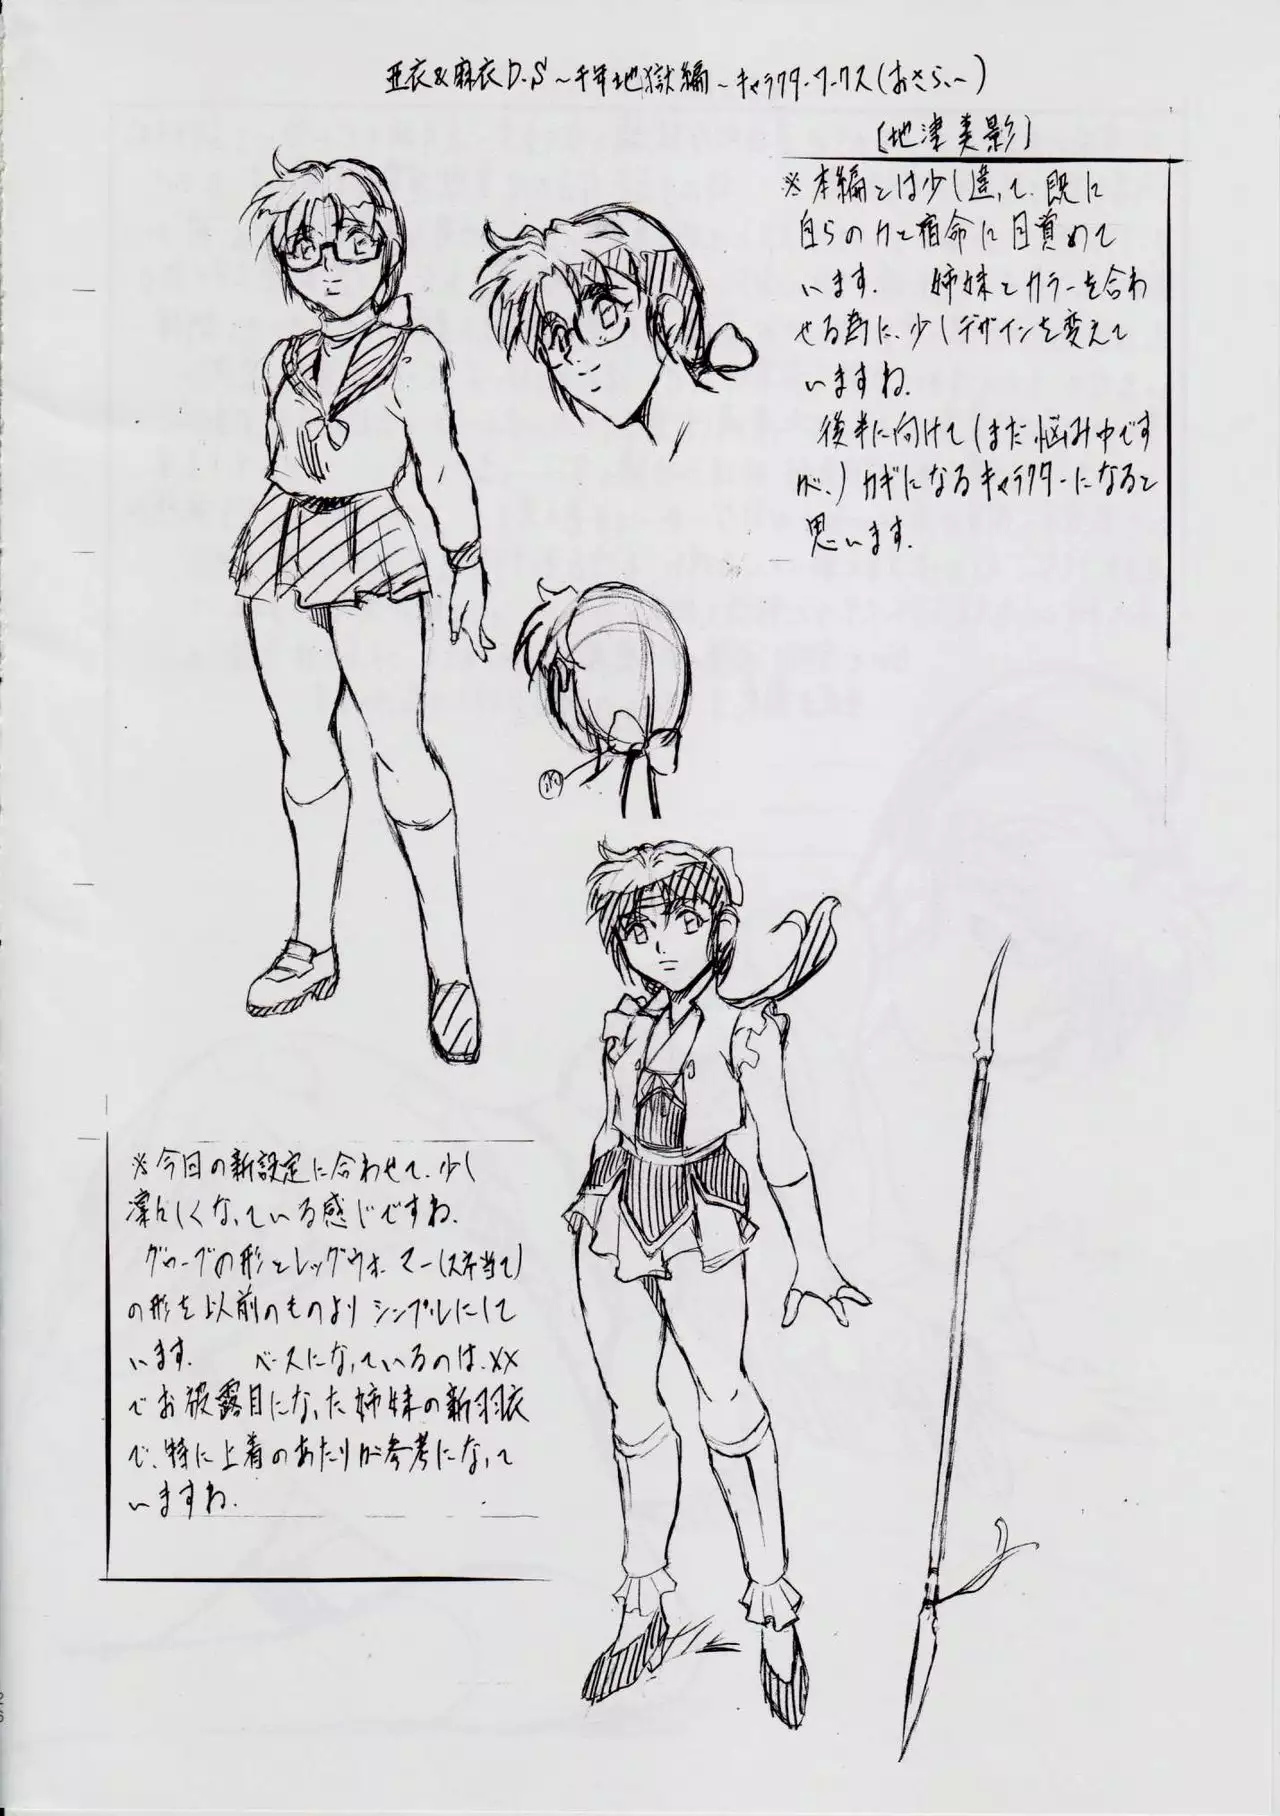 亜衣&麻衣D.S～千年地獄編～キャラクターワークス(おさらい～)
〔地津美影〕
※本編とは少し違って、既に
自らの力と宿命に目覚めて
います。 姉妹とカラーを合わ
せる為に、少しデザインを変えて
いますね。
後半に向けて(まだ悩み中です
が、)カギになるキャラクターになると
思います。
※今回の新設定に合わせて、少し
凛々しくなっている感じですね。
グローブの形とレッグウォーマー(スネ当て)
の形を以前のものよりシンプルにして
います。 ベースになっているのは、XX
でお披露目になった姉妹の新羽衣
で、特に上着のあたりが参考になって
いますね。
26